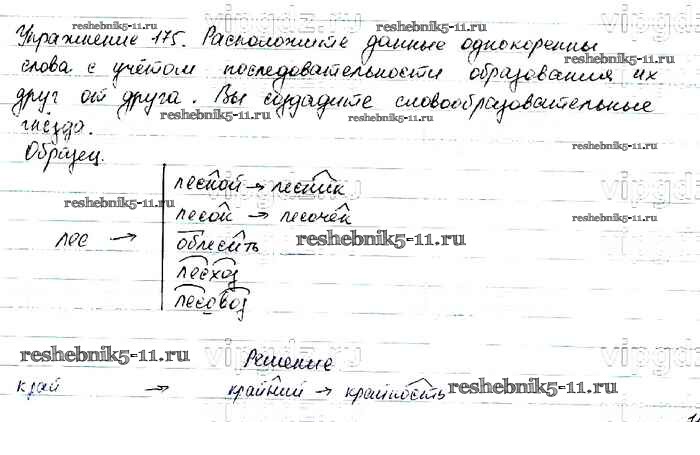 Упражнение 175. Расположите данные однокоренны
reshebnik5-11.ru
слова с учётом последовательности образования их
друг от друга. Вы создадите словообразовательные
reshebnik5-11.ru reshebnik5-11.ru
гнёзда.
Образец.
reshebnik5-11.ru
лесной → лесник
reshebnik5-11.ru
лесок → лесочек
reshebnik5-11.ru
лес → облесить reshebnik5-11.ru
лесхоз
лесовоз
reshebnik5-11.ru vipgdz.ru
Решение
край → крайний → крайность reshebnik5-11.ru